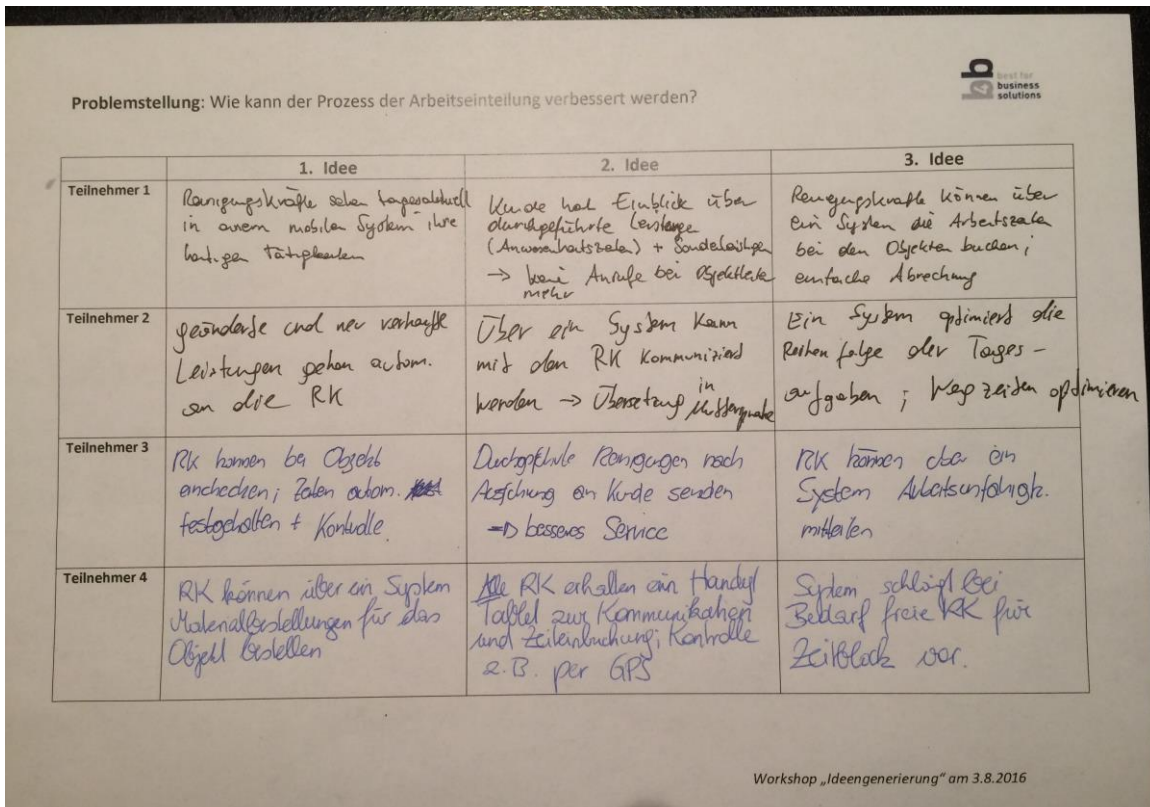 best for
business
solutions
Problemstellung: Wie kann der Prozess der Arbeitseinteilung verbessert werden?
1. Idee
2. Idee
3. Idee
Teilnehmer 1
Reinigungskräfte sehen tagesaktuell
in einem mobilen System ihre
heutigen Tätigkeiten
Kunde hat Einblick über
durchgeführte Leistungen
(Anwesenheitszeiten) + Sonderleistungen
→ keine Anrufe bei Objektleiter
mehr
Reinigungskräfte können über
ein System die Arbeitszeiten
bei den Objekten buchen;
einfache Abrechnung
Teilnehmer 2
geänderte und neu verkaufte
Leistungen gehen autom.
an die RK
Über ein System kann
mit den RK kommuniziert
werden → Übersetzung in Muttersprache
Ein System optimiert die
Reihenfolge der Tages-
aufgaben; Wegzeiten optimieren
Teilnehmer 3
RK können bei Objekt
einchecken; Zeiten autom.
festgehalten + Kontrolle
Durchgeführte Reinigungen nach
an Kunde senden
→ besseres Service
RK können über ein
System Arbeitsunfähigk.
mitteilen
Teilnehmer 4
RK können über ein System
Materialbestellungen für das
Objekt bestellen
Alle RK erhalten ein Handy/
Tablet zur Kommunikation
und Zeiteinbuchung; Kontrolle
z.B. per GPS
System schlägt bei
Bedarf freie RK für
Zeitblock vor.
Workshop „Ideengenerierung" am 3.8.2016